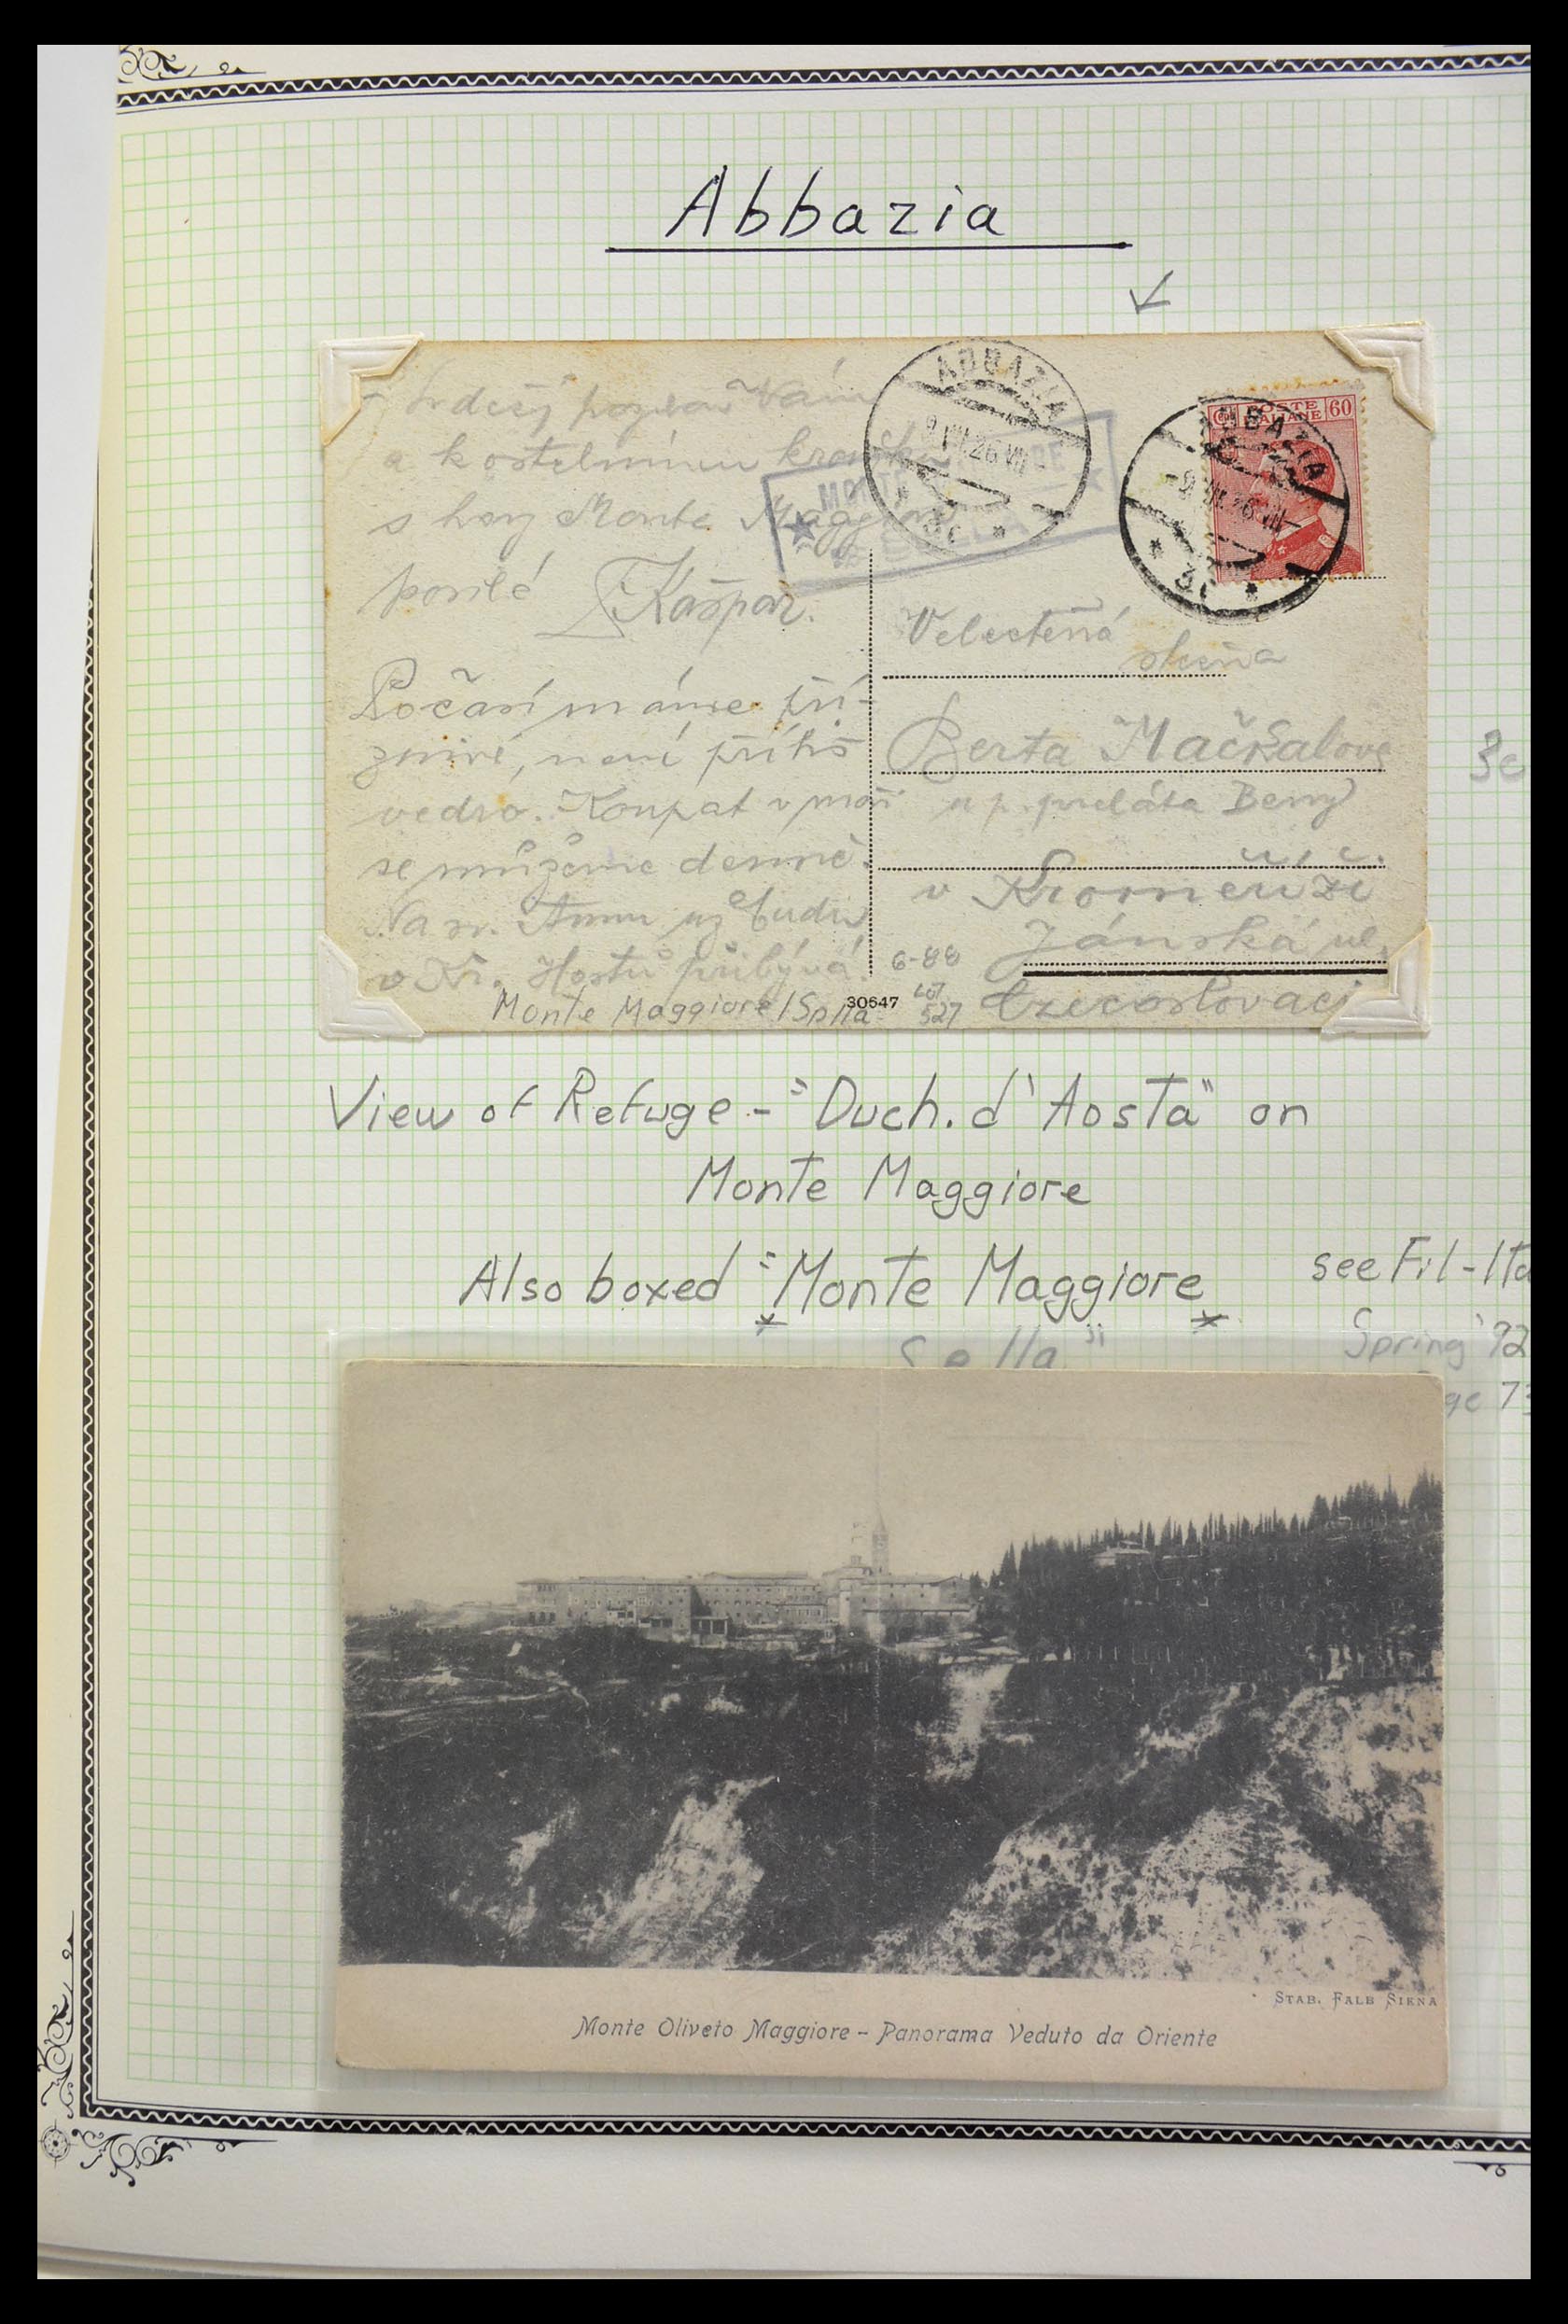 Abbazia
Srdečný pozdrav Vám
a kostelnímu
s hory Monte Maggiore
posílá Kašpar.
Počasí máme pří-
znivé, není příliš
vedro. Koupat v moři
se můžeme denně.
Na sv. Annu už budu
v Hostý přibývá.
Monte Maggiore / Sella
30647
ABBAZIA
MONTE MAGGIORE
SELLA
ABBAZIA
POSTE ITALIANE
60
Velectěná
slečna
Berta Mačkalova
u p. preláta
v Kromeriži
Jánská ul.
6-88
Lot
527
Czecoslovaci
View of Refuge - "Duch. d'Aosta" on
Monte Maggiore
Also boxed "Monte Maggiore
Sella"
see Fil-Ita
Spring '92
STAB. FALB SIENA
Monte Oliveto Maggiore – Panorama Veduto da Oriente